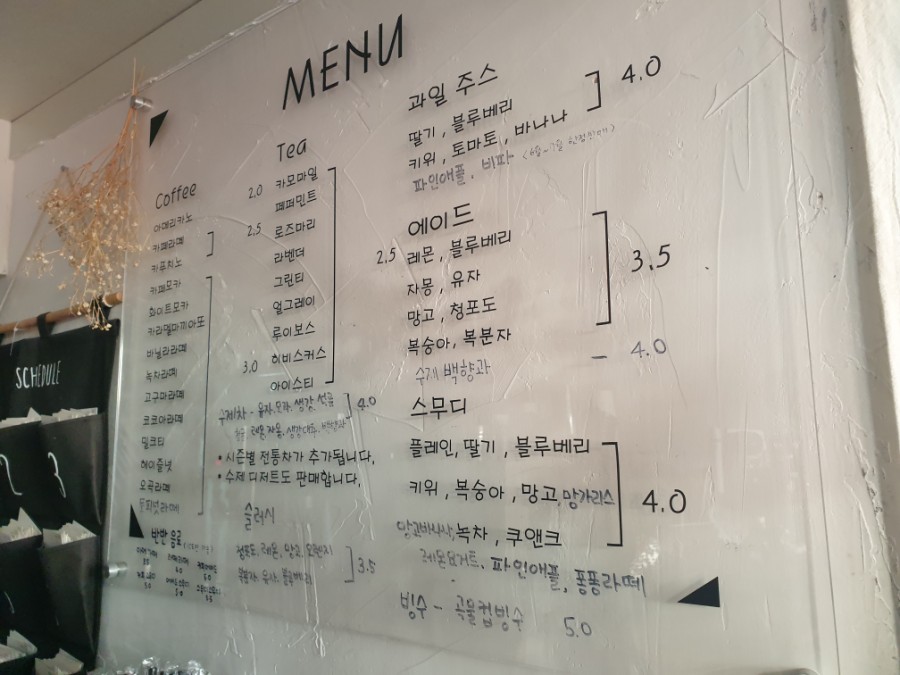 MENU
Coffee
아메리카노
2.0
카페라떼
카푸치노
2.5
카페모카
화이트모카
카라멜마끼아또
바닐라라떼
녹차라떼
고구마라떼
코코아라떼
밀크티
헤이즐넛
오곡라떼
3.0
반반 음료
Tea
카모마일
페퍼민트
로즈마리
라벤더
그린티
얼그레이
루이보스
히비스커스
아이스티
2.5
수제차 - 유자, 모과, 생강, 석류
4.0
• 시즌별 전통차가 추가됩니다.
• 수제 디저트도 판매합니다.
슬러시
청포도, 레몬, 망고, 오렌지
3.5
과일 주스
딸기, 블루베리
키위, 토마토, 바나나
4.0
파인애플, 비파
에이드
레몬, 블루베리
자몽, 유자
망고, 청포도
복숭아, 복분자
3.5
수제 백향과
— 4.0
스무디
플레인, 딸기, 블루베리
키위, 복숭아, 망고, 망가리스
망고바나나, 녹차, 쿠앤크
4.0
레몬요거트, 파인애플, 퐁퐁라떼
빙수 - 곡물컵빙수 5.0
SCHEDULE
2 3